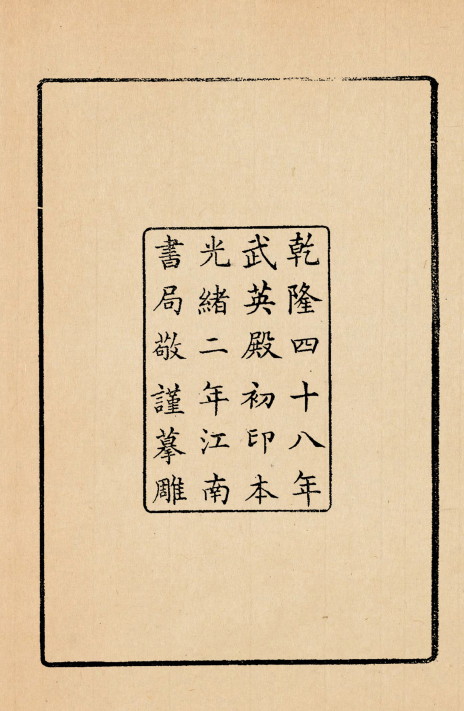 乾隆四十八年
武英殿初印本
光緒二年江南
書局敬謹摹雕